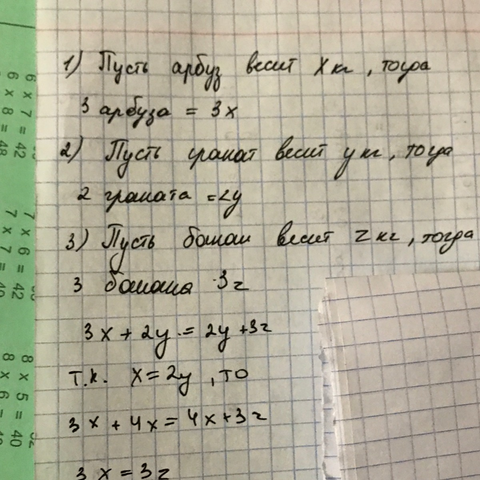 1) Пусть арбуз весит x кг, тогда
3 арбуза = 3x
2) Пусть гранат весит y кг, тогда
2 граната = 2y
3) Пусть банан весит z кг, тогда
3 банана 3z
3x + 2y = 2y + 3z
т.к. x = 2y, то
3x + 4x = 4x + 3z
3x = 3z
6 x 7 = 42
6 x 8 = 48
7 x 6 = 42
7 x 7 = 49
8 x 5 = 40
8 x 6 =